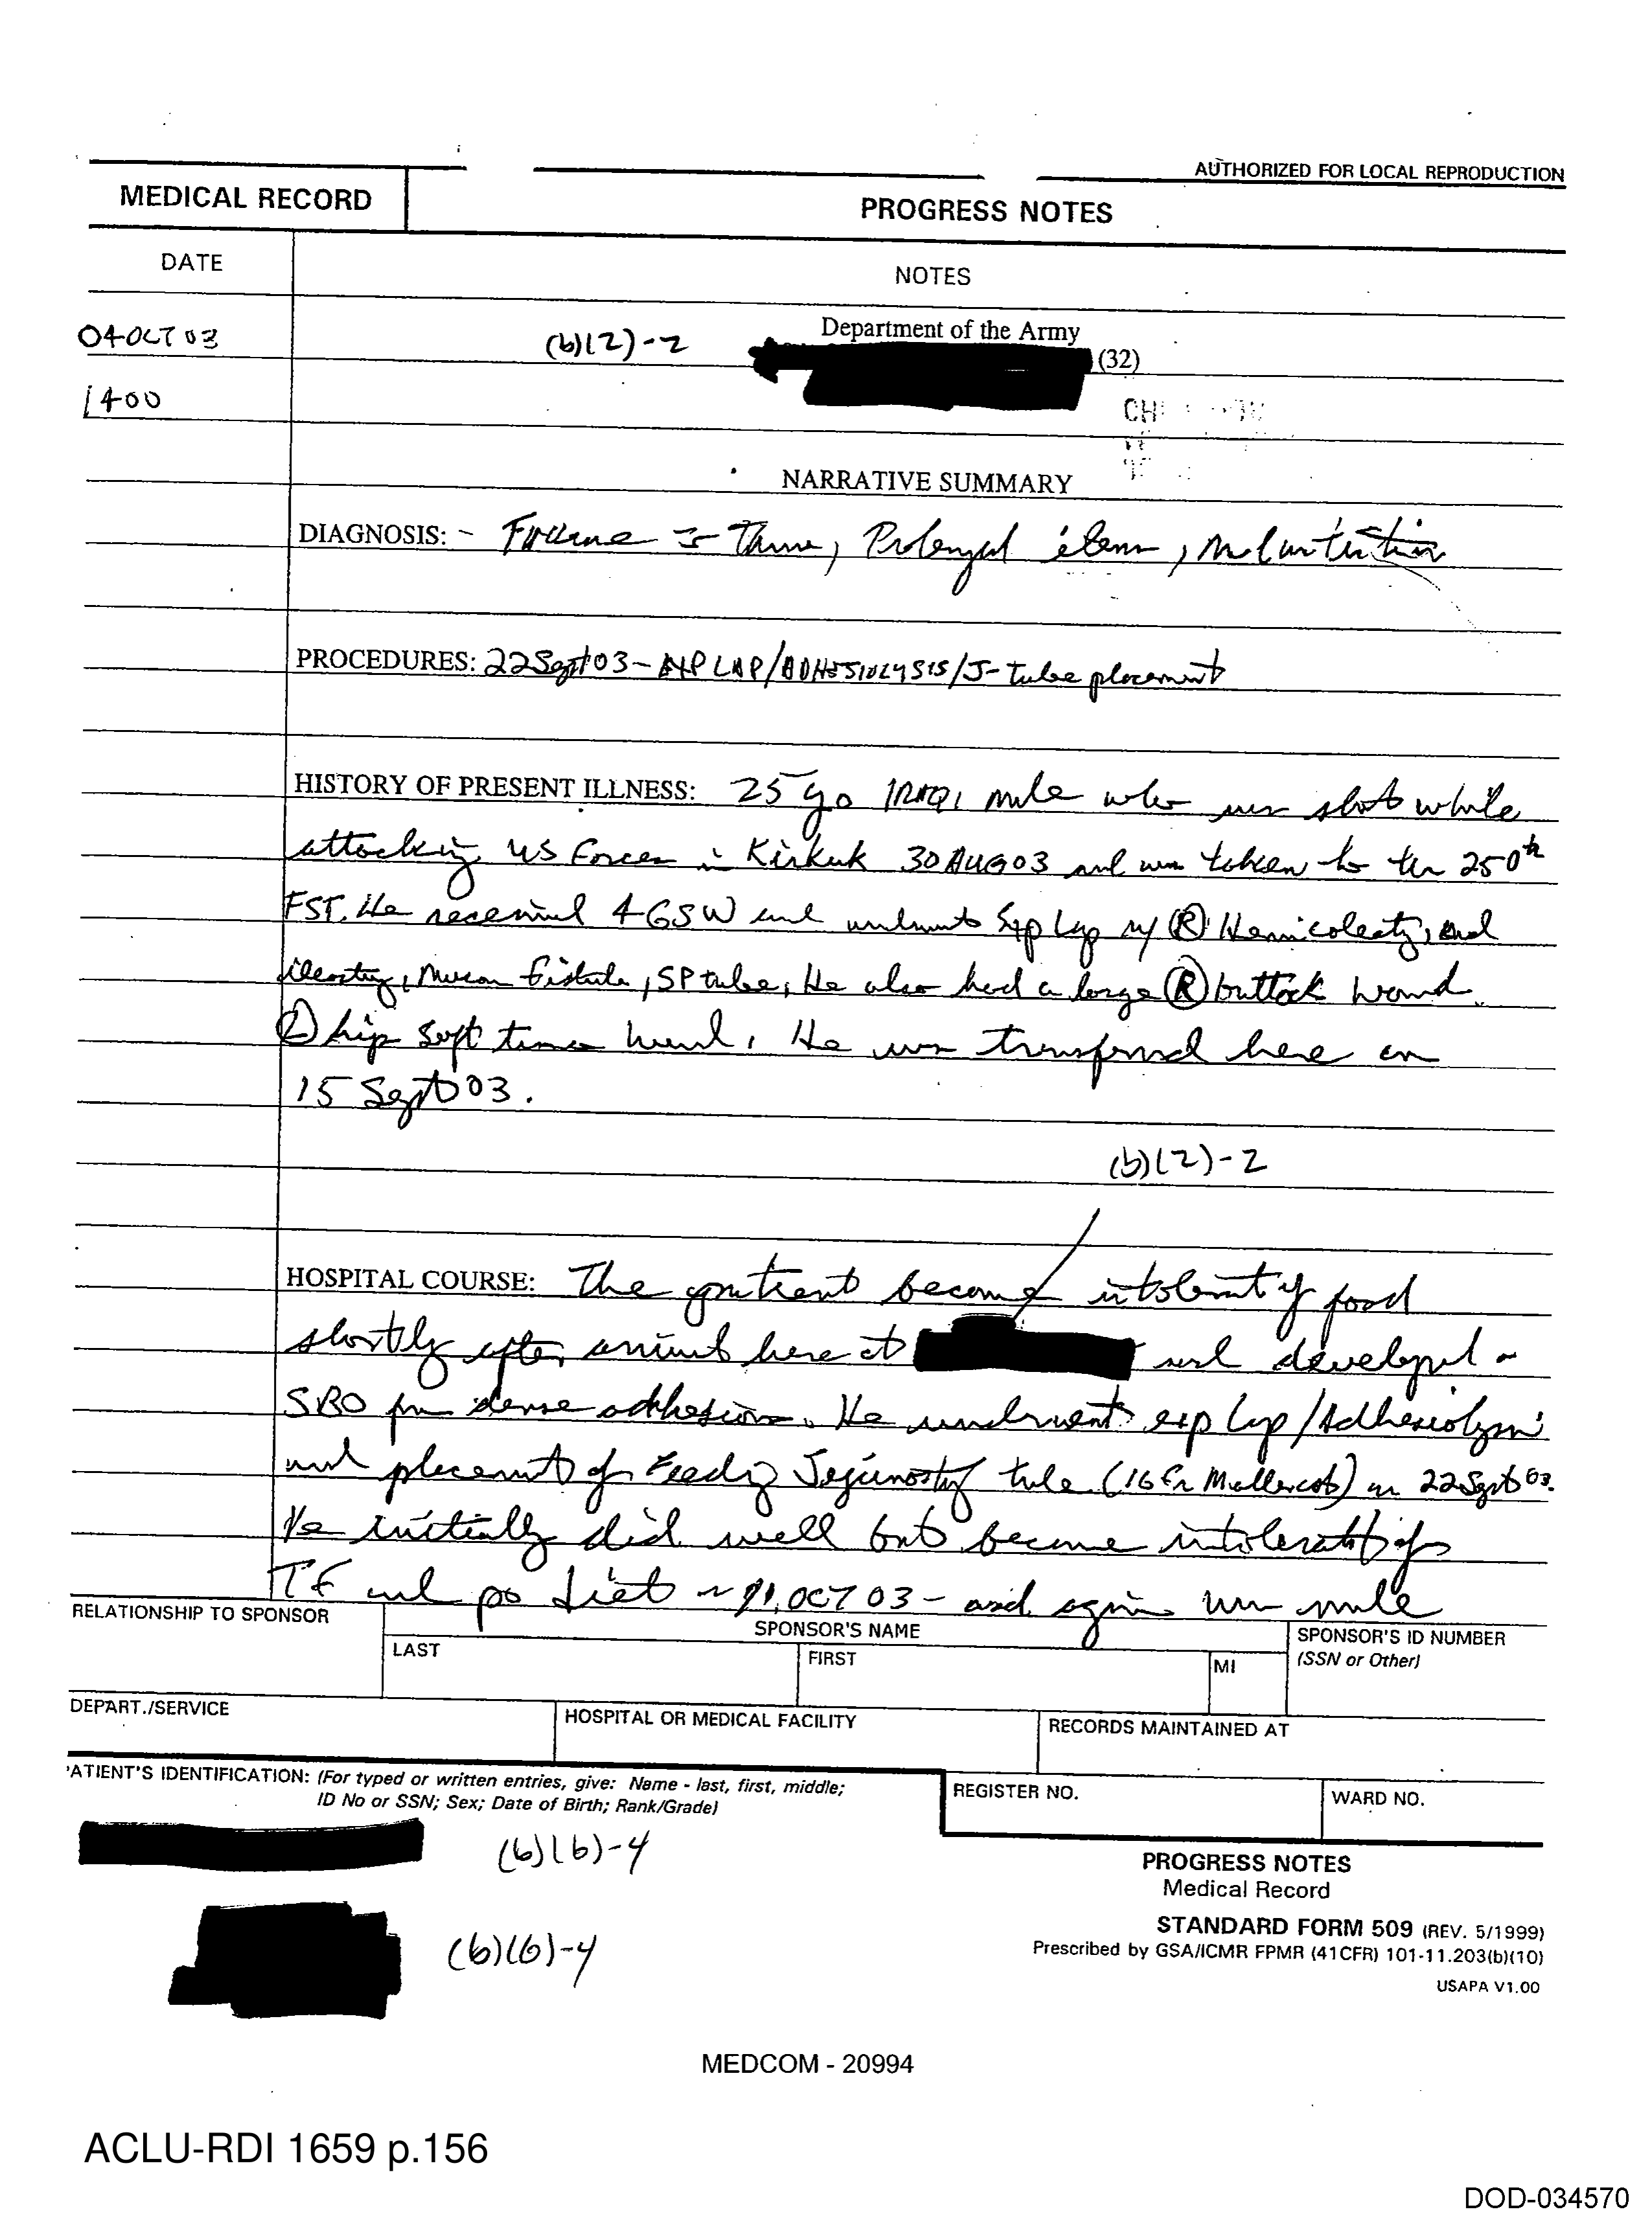 AUTHORIZED FOR LOCAL REPRODUCTION
MEDICAL RECORD
PROGRESS NOTES
DATE
NOTES
04 OCT 03
(b)(2)-2
Department of the Army
(32)
1400
NARRATIVE SUMMARY
DIAGNOSIS: - Failure to Thrive, Prolonged ileus, Malnutrition
PROCEDURES: 22 Sept 03 - EXP LAP/ADHESIOLYSIS/J-tube placement
HISTORY OF PRESENT ILLNESS: 25 yo IRAQI male who was shot while
attacking US Forces in Kirkuk 30 AUG 03 and was taken to the 250th
FST. He received 4 GSW and underwent Exp Lap w/ (R) Hemicolectomy, end
ileostomy, Mucous fistula, SP tube, He also had a large (R) buttock wound
(L) hip soft tissue wound. He was transferred here on
15 Sept 03.
(b)(2)-2
HOSPITAL COURSE: The patient became intolerant of food
shortly after arrival here at and developed a
SBO from dense adhesions. He underwent exp lap/Adhesiolysis
and placement of Feeding Jejunostomy tube (16 Fr Mallencot) on 22 Sept 03.
He initially did well but became intolerant of
TF and po diet ~ 1 OCT 03 - and again was made
RELATIONSHIP TO SPONSOR
SPONSOR'S NAME
SPONSOR'S ID NUMBER
(SSN or Other)
LAST
FIRST
MI
DEPART./SERVICE
HOSPITAL OR MEDICAL FACILITY
RECORDS MAINTAINED AT
'ATIENT'S IDENTIFICATION: (For typed or written entries, give: Name - last, first, middle;
ID No or SSN; Sex; Date of Birth; Rank/Grade)
REGISTER NO.
WARD NO.
(b)(6)-4
(b)(6)-4
PROGRESS NOTES
Medical Record
STANDARD FORM 509 (REV. 5/1999)
Prescribed by GSA/ICMR FPMR (41CFR) 101-11.203(b)(10)
USAPA V1.00
MEDCOM - 20994
ACLU-RDI 1659 p.156
DOD-034570